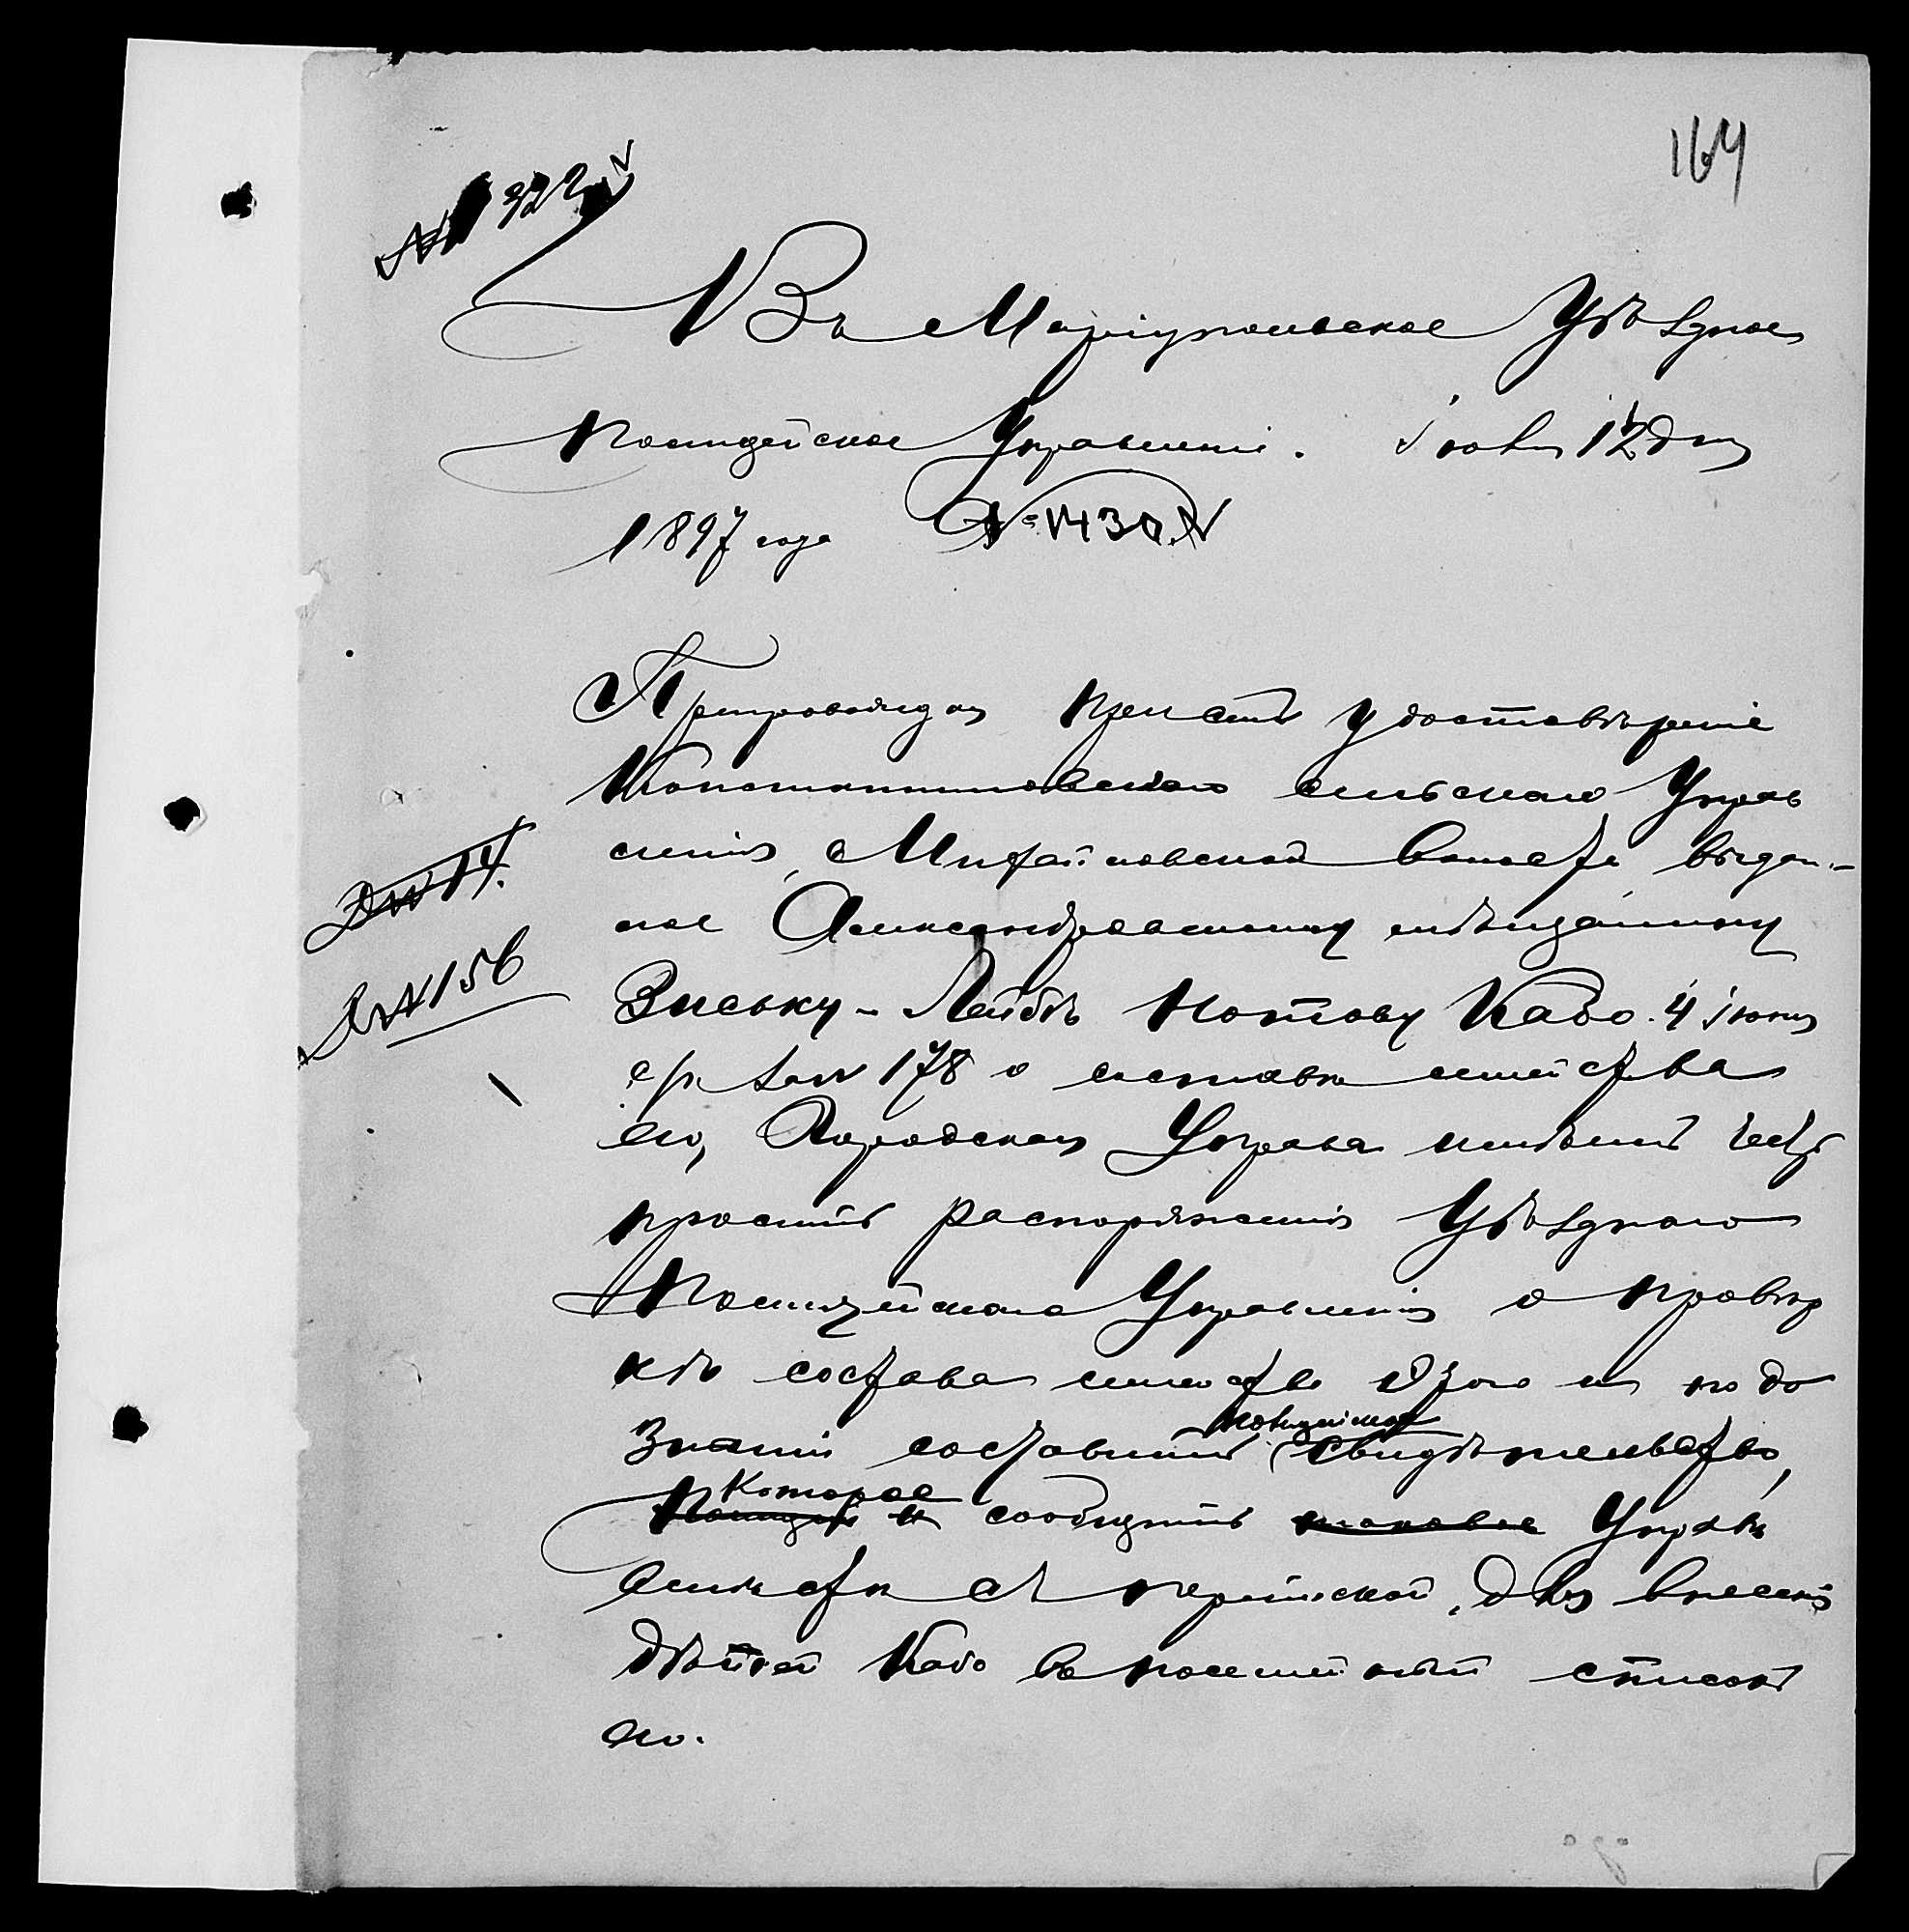 164
№ 922
Въ Маріупольское Уѣздное
Полицейское Управленіе. Іюня 12 дня
1897 года № 1430
Препровождая при семъ удостовѣреніе
Константиновскаго сельскаго Управ
ленія, Михайловской волости выдан-
ное Александровскому мѣщанину
Зиську-Лейбѣ Нотову Кабо. 4 Іюня
с/г за № 178 о составѣ семейства
его, Городская Управа имѣетъ честь
просить распоряженія Уѣзднаго
Полицейскаго Управленія о провѣр
кѣ состава семейства этого и по до
знаніи составить свидѣтельство,
полицейское
которое
Полиціи и сообщить таковое Управѣ
вмѣстѣ съ перепиской, для внесенія
дѣтей Кабо въ посемейный списокъ
его.
№ 14.
№ 156